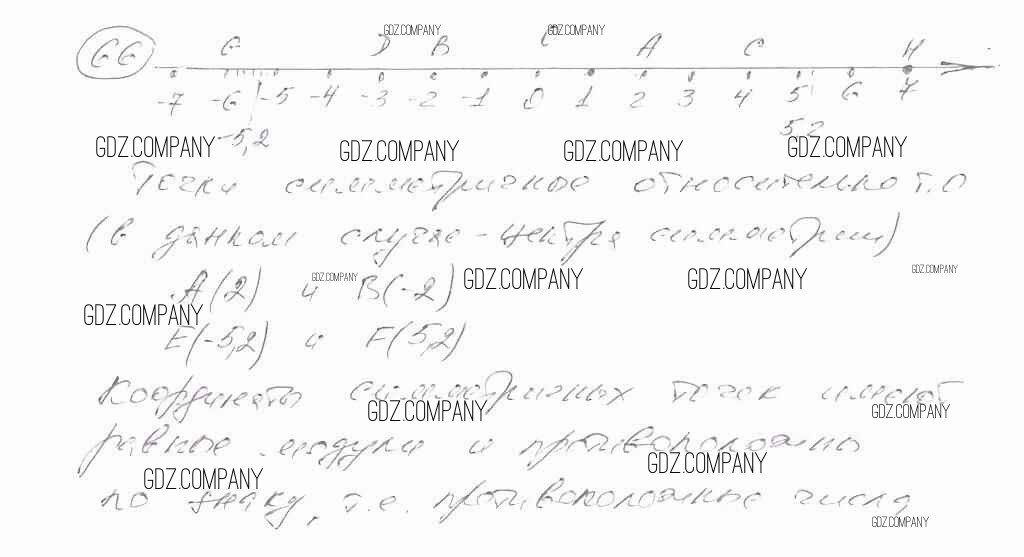 GDZ.COMPANY GDZ.COMPANY
66 G D B C A C H
-7 -6 -5 -4 -3 -2 -1 0 1 2 3 4 5 6 7
-5,2 5,2
GDZ.COMPANY GDZ.COMPANY GDZ.COMPANY GDZ.COMPANY
Точки симметричные относительно т.О
(в данном случае - центра симметрии)
GDZ.COMPANY GDZ.COMPANY GDZ.COMPANY GDZ.COMPANY
A(2) и B(-2)
GDZ.COMPANY
E(-5,2) и F(5,2)
Координаты симметричных точек имеют
GDZ.COMPANY GDZ.COMPANY
равные модули и противоположны
GDZ.COMPANY GDZ.COMPANY
по знаку, т.е. противоположные числа
GDZ.COMPANY